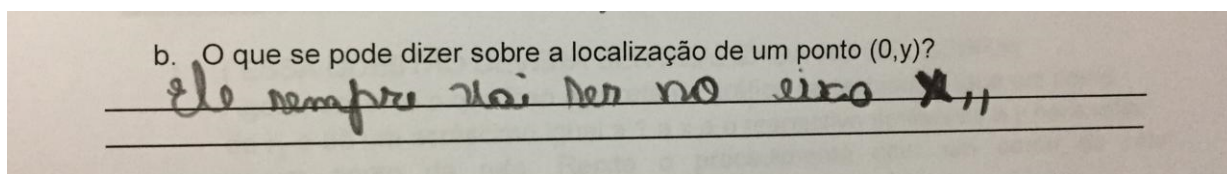 b. O que se pode dizer sobre a localização de um ponto (0,y)?
Ele sempre vai ser no eixo